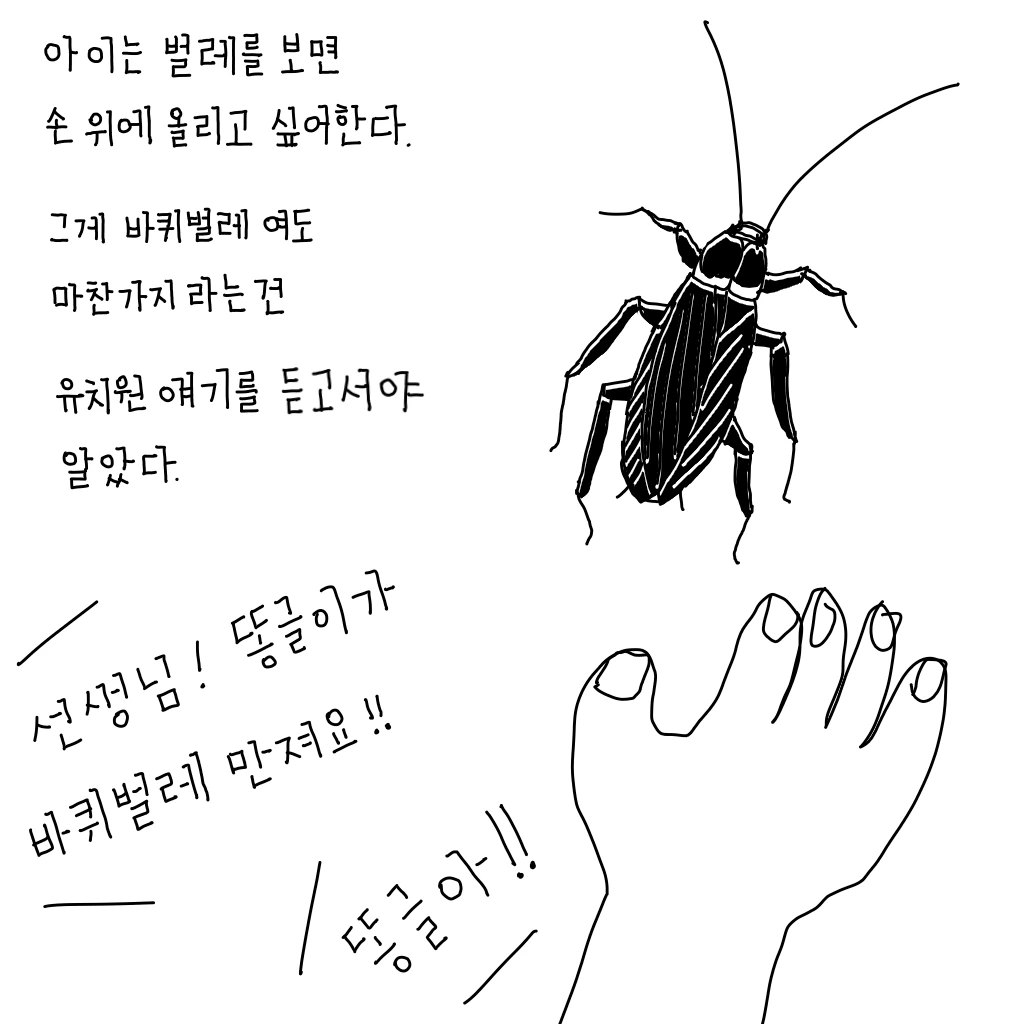 아이는 벌레를 보면
손 위에 올리고 싶어한다.
그게 바퀴벌레 여도
마찬가지 라는 건
유치원 얘기를 듣고서야
알았다.
선생님! 똥글이가
바퀴벌레 만져요!!
똥글아!!